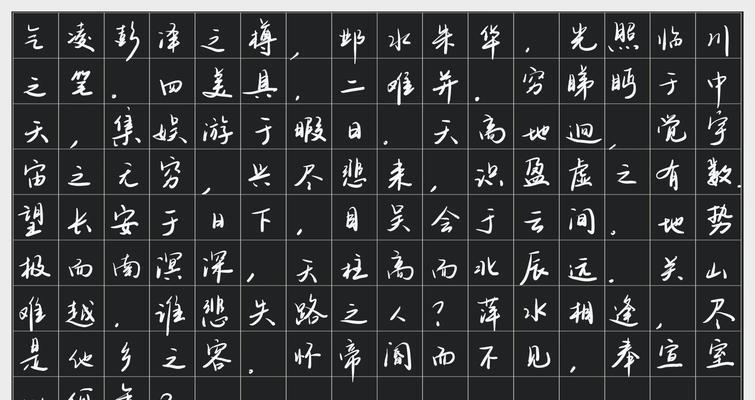 气凌彭泽之樽，邺水朱华，光照临川
之笔。四美具，二难并。穷睇眄于中
天，集娱游于暇日。天高地迥，觉宇
宙之无穷，兴尽悲来，识盈虚之有数。
望长安于日下，目吴会于云间。地势
极而南溟深，天柱高而北辰远。关山
难越，谁悲失路之人？萍水相逢，尽
是他乡之客。怀帝阍而不见，奉宣室
以何年？